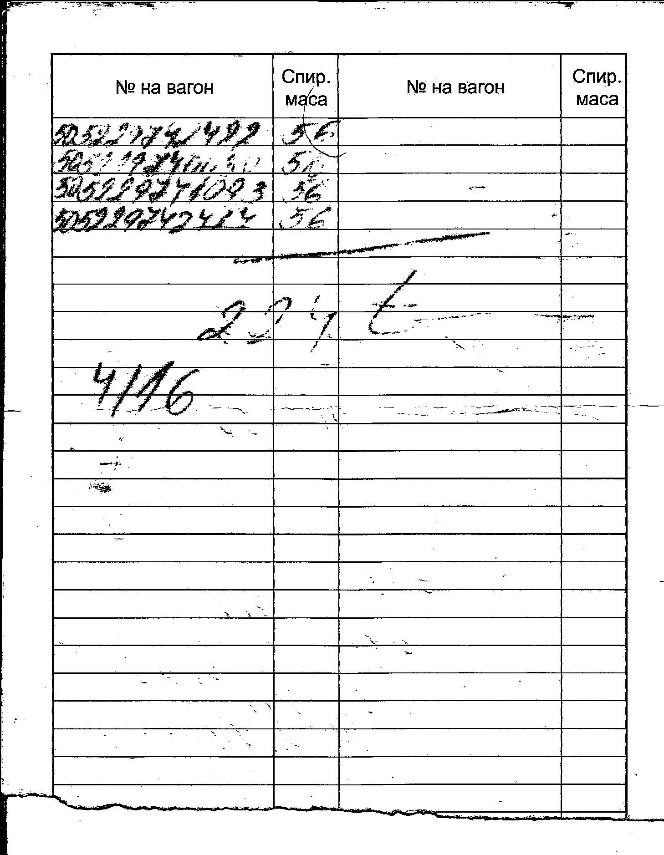 № на вагон Спир. маса № на вагон Спир. маса
505229741492 56
56
505229741093 56
505229742414 56
224 t
4/16